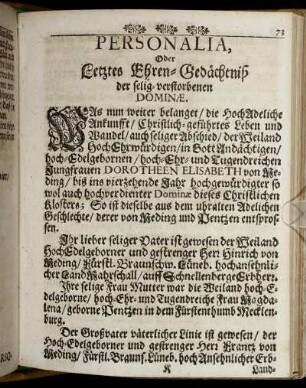 73
PERSONALIA,
Oder
Letztes Ehren-Gedächtniß
der selig-verstorbenen
DOMINÆ.
WAs nun weiter belanget/ die HochAdeliche
Ankunfft/ Christlich-geführtes Leben und
Wandel/ auch selige Abschied/ der Weiland
HochEhrwürdigen/ in Gott Andächtigen/
hoch-Edelgebornen/ hoch-Ehr- und Tugendreichen
Jungfrauen DOROTHEEN ELISABETH von Me-
ding/ bis ins vierzehende Jahr hochgewürdigter so
wol auch hochverdienter Dominæ dieses Christlichen
Klosters: So ist dieselbe aus dem uhralten Adelichen
Geschlechte/ derer von Meding und Pentzen entspros-
sen.
Ihr lieber seliger Vater ist gewesen der Weiland
HochEdelgeborner und gestrenger Herr Hinrich von
Meding/ Fürstl. Braunschw. Lüneb. hochansehnli-
cher Land Marschall/ auff Schnellenberge Erbherr.
Ihre selige Frau Mutter war die Weiland hoch-E-
delgeborne/ hoch-Ehr- und Tugendreiche Frau Magda-
lena/ geborne Pentzen in dem Fürstenthumb Mecklen-
burg.
Der Großvater väterlicher Linie ist gewesen/ der
Hoch-Edelgeborner und gestrenger Herr Frantz von
Meding/ Fürstl. Braunf. Lüneb. hoch Ansehnlicher Erb-
K Land-